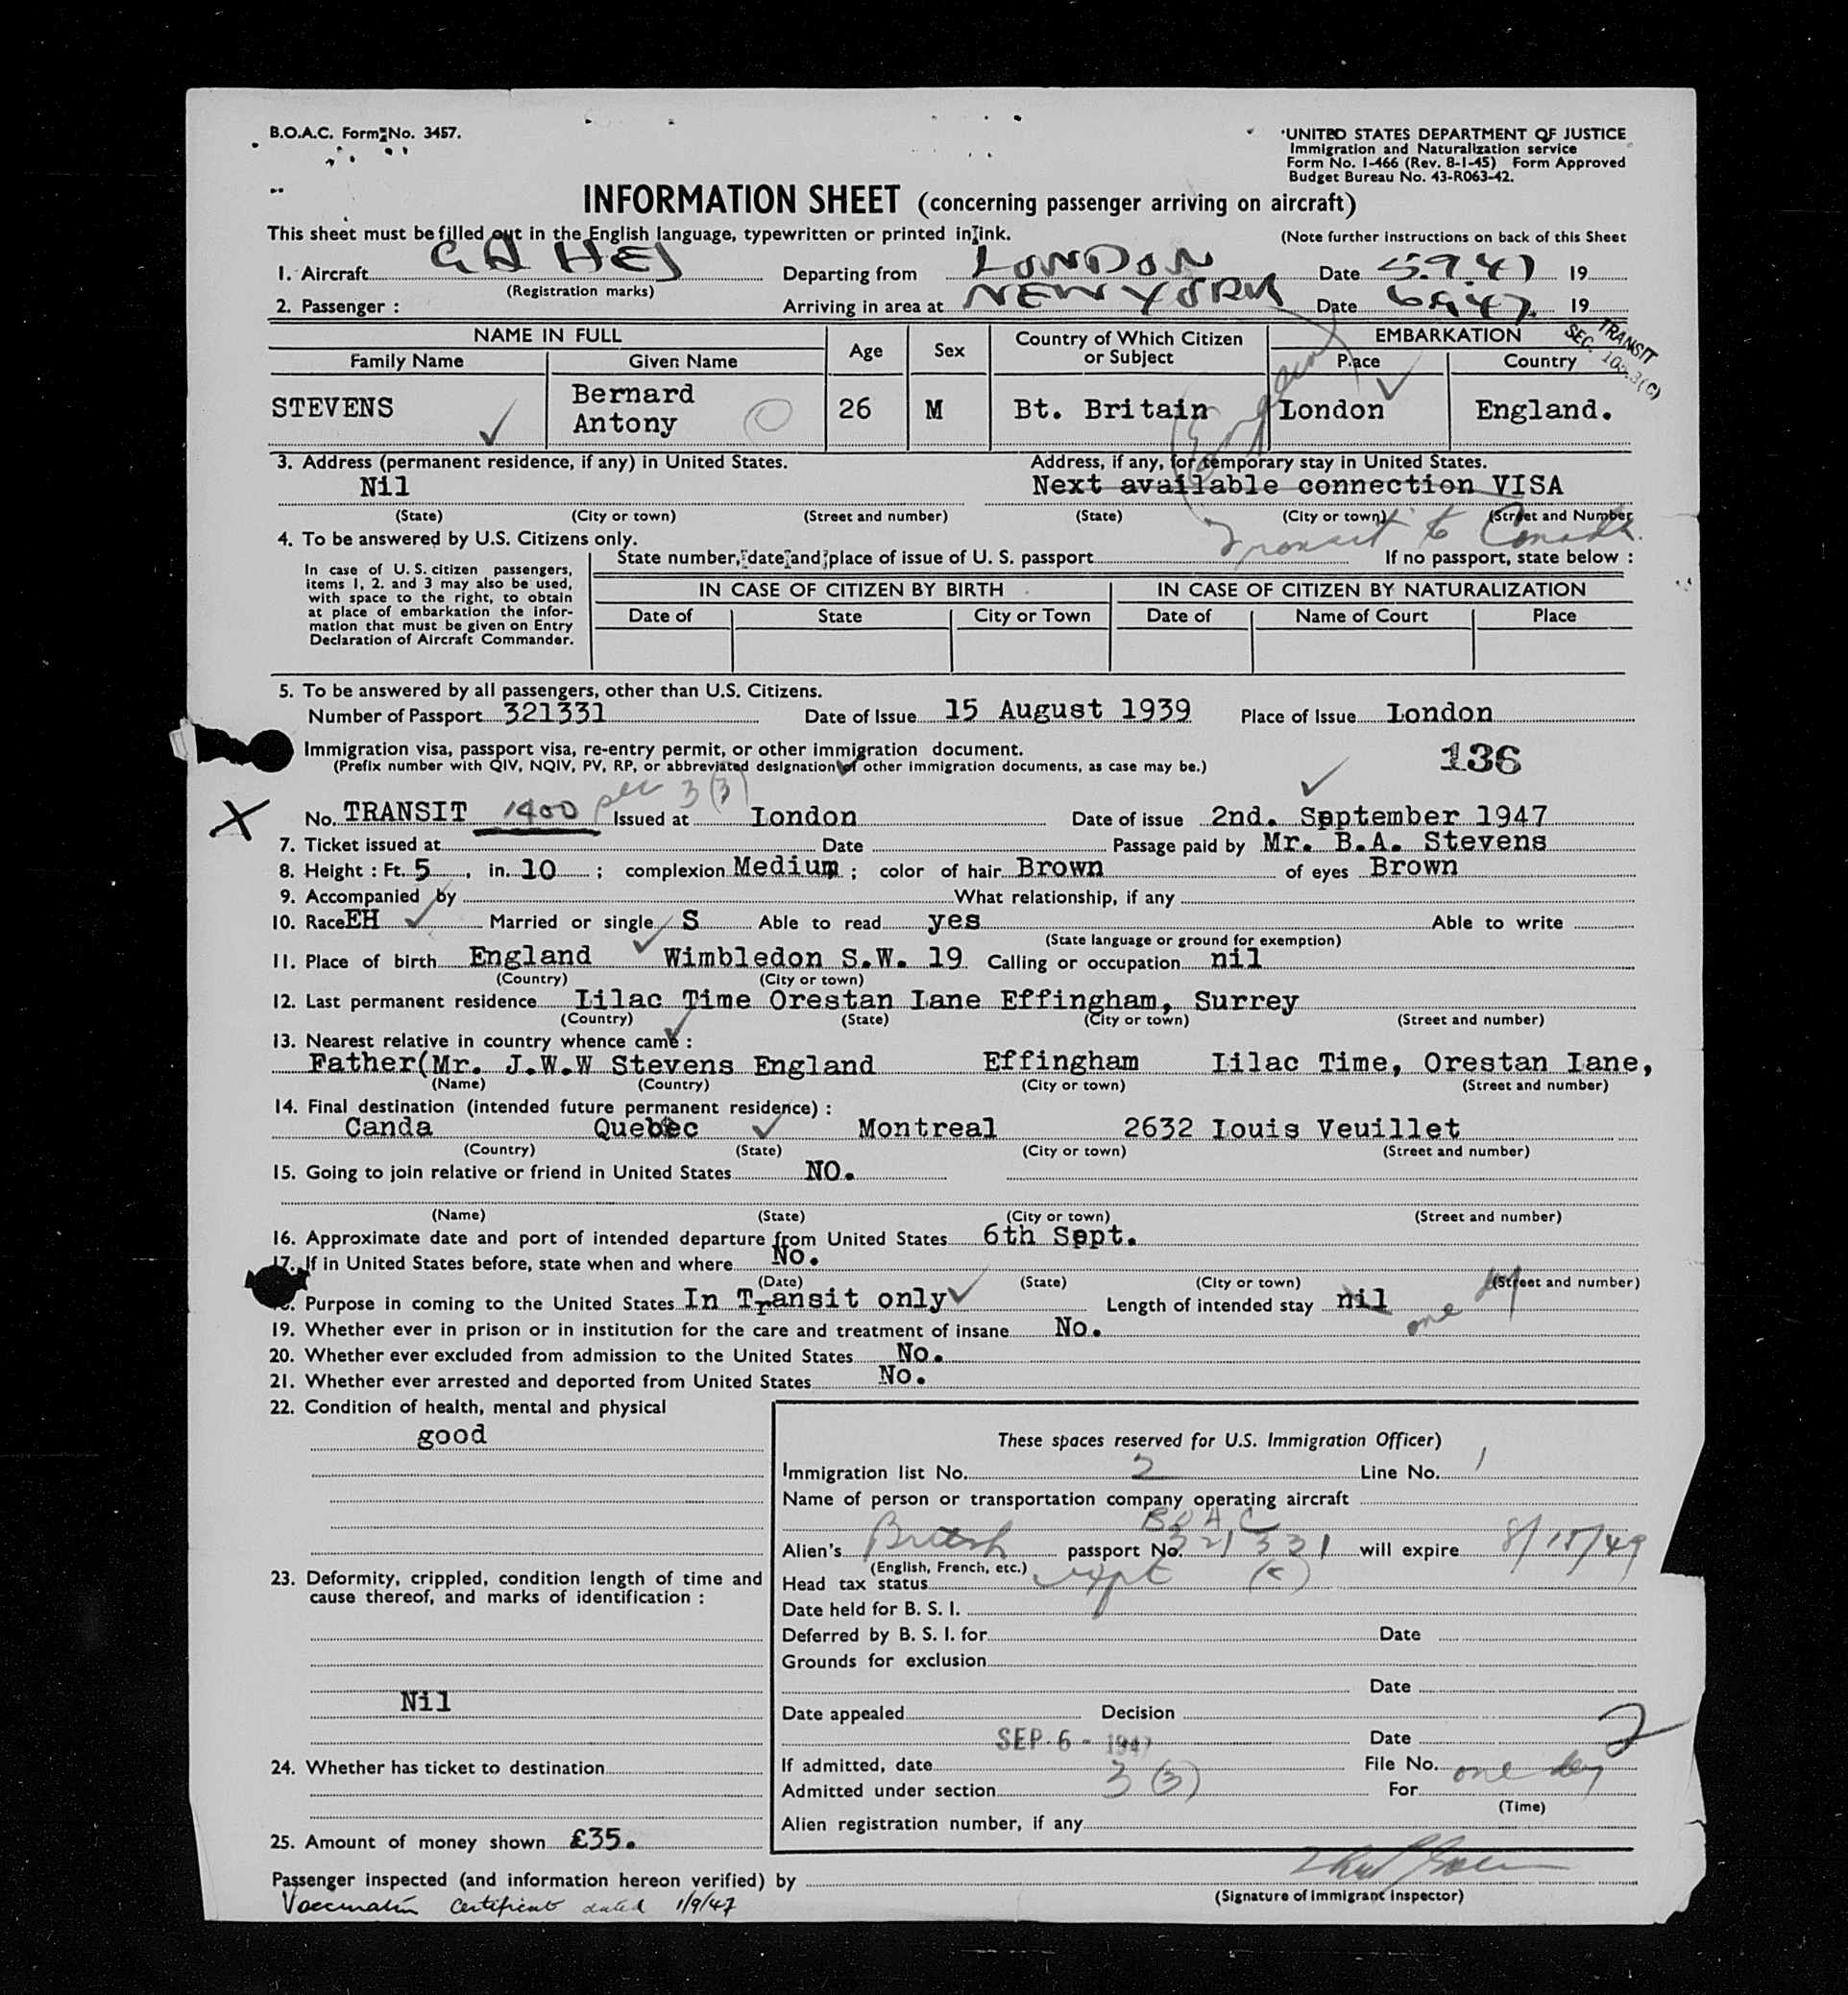 B.O.A.C. Form No. 3457.
UNITED STATES DEPARTMENT OF JUSTICE
Immigration and Naturalization service
Form No. I-466 (Rev. 8-1-45) Form Approved
Budget Bureau No. 43-R063-42.
INFORMATION SHEET (concerning passenger arriving on aircraft)
This sheet must be filled out in the English language, typewritten or printed in ink. (Note further instructions on back of this Sheet
1. Aircraft Departing from LONDON Date 5.9.47 19
(Registration marks)
2. Passenger : Arriving in area at NEW YORK Date 6.9.47. 19
TRANSIT
SEC.
NAME IN FULL Age Sex Country of Which Citizen or Subject EMBARKATION
Family Name Given Name Place Country
STEVENS Bernard Antony 26 M Bt. Britain London England.
3. Address (permanent residence, if any) in United States. Address, if any, for temporary stay in United States.
Nil Next available connection VISA
(State) (City or town) (Street and number) (State) (City or town) (Street and Number
Transit to Canada.
4. To be answered by U.S. Citizens only.
State number, date and place of issue of U. S. passport If no passport, state below :
In case of U.S. citizen passengers,
items 1, 2. and 3 may also be used,
with space to the right, to obtain
at place of embarkation the infor-
mation that must be given on Entry
Declaration of Aircraft Commander.
IN CASE OF CITIZEN BY BIRTH IN CASE OF CITIZEN BY NATURALIZATION
Date of State City or Town Date of Name of Court Place
5. To be answered by all passengers, other than U.S. Citizens.
Number of Passport 321331 Date of Issue 15 August 1939 Place of Issue London
Immigration visa, passport visa, re-entry permit, or other immigration document.
(Prefix number with QIV, NQIV, PV, RP, or abbreviated designation of other immigration documents, as case may be.)
136
No. TRANSIT 1400 sec 3(3) Issued at London Date of issue 2nd. September 1947
7. Ticket issued at Date Passage paid by Mr. B.A. Stevens
8. Height : Ft. 5 , in. 10 ; complexion Medium ; color of hair Brown of eyes Brown
9. Accompanied by What relationship, if any
10. Race EH Married or single S Able to read yes Able to write
(State language or ground for exemption)
11. Place of birth England Wimbledon S.W. 19 Calling or occupation nil
(Country) (City or town)
12. Last permanent residence Lilac Time Orestan Lane Effingham, Surrey
(Country) (State) (City or town) (Street and number)
13. Nearest relative in country whence came :
Father(Mr. J.W.W Stevens England Effingham Lilac Time, Orestan Lane,
(Name) (Country) (City or town) (Street and number)
14. Final destination (intended future permanent residence) :
Canda Quebec Montreal 2632 Louis Veuillet
(Country) (State) (City or town) (Street and number)
15. Going to join relative or friend in United States NO.
(Name) (State) (City or town) (Street and number)
16. Approximate date and port of intended departure from United States 6th Sept.
17. If in United States before, state when and where No.
(Date) (State) (City or town) (Street and number)
Purpose in coming to the United States In Transit only Length of intended stay nil one day
19. Whether ever in prison or in institution for the care and treatment of insane No.
20. Whether ever excluded from admission to the United States No.
21. Whether ever arrested and deported from United States No.
22. Condition of health, mental and physical
good
23. Deformity, crippled, condition length of time and
cause thereof, and marks of identification :
Nil
24. Whether has ticket to destination
25. Amount of money shown £35.
These spaces reserved for U.S. Immigration Officer)
Immigration list No. 2 Line No. 1
Name of person or transportation company operating aircraft
BOAC
Alien's British passport No. 321331 will expire 8/15/49
(English, French, etc.)
Head tax status (c)
Date held for B. S. I.
Deferred by B. S. I. for Date
Grounds for exclusion
Date
Date appealed Decision
Date 2
SEP 6 - 1947
If admitted, date File No.
Admitted under section 3(3) For one day
(Time)
Alien registration number, if any
Passenger inspected (and information hereon verified) by
(Signature of Immigrant Inspector)
Vaccination Certificate dated 1/9/47